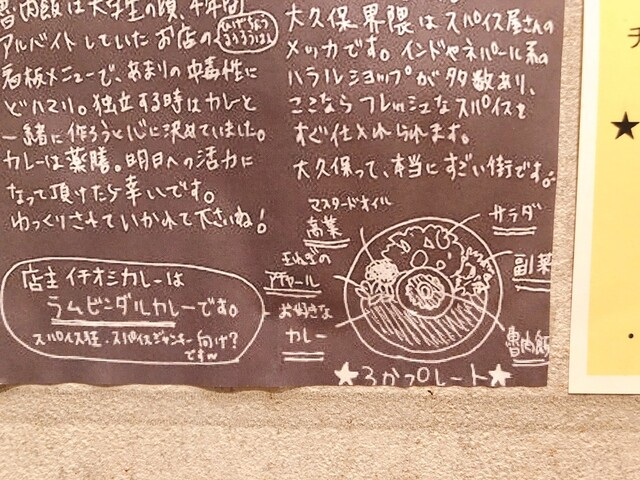 魯肉飯は大学生の頃、4年間
アルバイトしていたお店の
看板メニューで、あまりの中毒性に
ドハマり。独立する時はカレーと
一緒に作ろうと心に決めていました。
カレーは薬膳。明日への活力に
なって頂けたら幸いです。
ゆっくりされていかれて下さいね!
店主イチオシカレーは
ラムビンダルカレーです。
スパイス狂・スパイスジャンキー向け?
です〜
大久保界隈はスパイス屋さんの
メッカです。インドやネパール系の
ハラルショップが多数あり、
ここならフレッシュなスパイスを
すぐ仕入れられます。
大久保って、本当にすごい街です。
マスタードオイル
高菜
サラダ
玉ねぎの
アチャール
副菜
お好きな
カレー
魯肉飯
★ろかプレート★
★